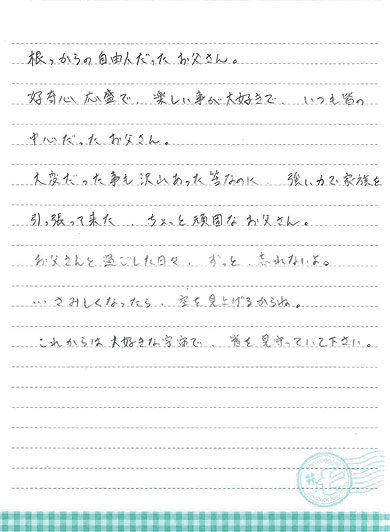 根っからの自由人だった お父さん。
好奇心 応盛で、楽しい事が大好きで、いつも皆の
中心だった お父さん。
大変だった事も 沢山あった筈なのに、強い力で家族を
引っ張って来た、ちょっと頑固な お父さん。
お父さんと 過ごした日々、ずっと 忘れないよ。
… さみしくなったら、空を見上げるからね。
これからは 大好きな宇宙で、皆を見守っていて下さい。